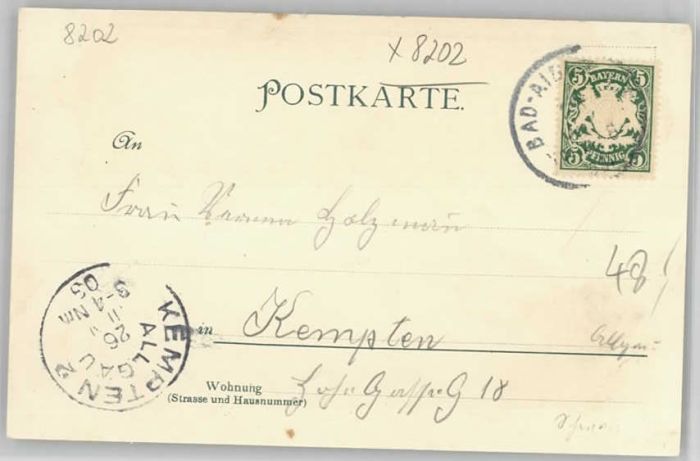 8202
x 8202
POSTKARTE.
BAD-AIB
5 BAYERN 5
5 PFENNIG 5
An
Frau Holzmann
48
in Kempten
Allgäu
Wohnung
(Strasse und Hausnummer)
Gasse 18
KEMPTEN 2
ALLGÄU
26
3-4 Nm
03